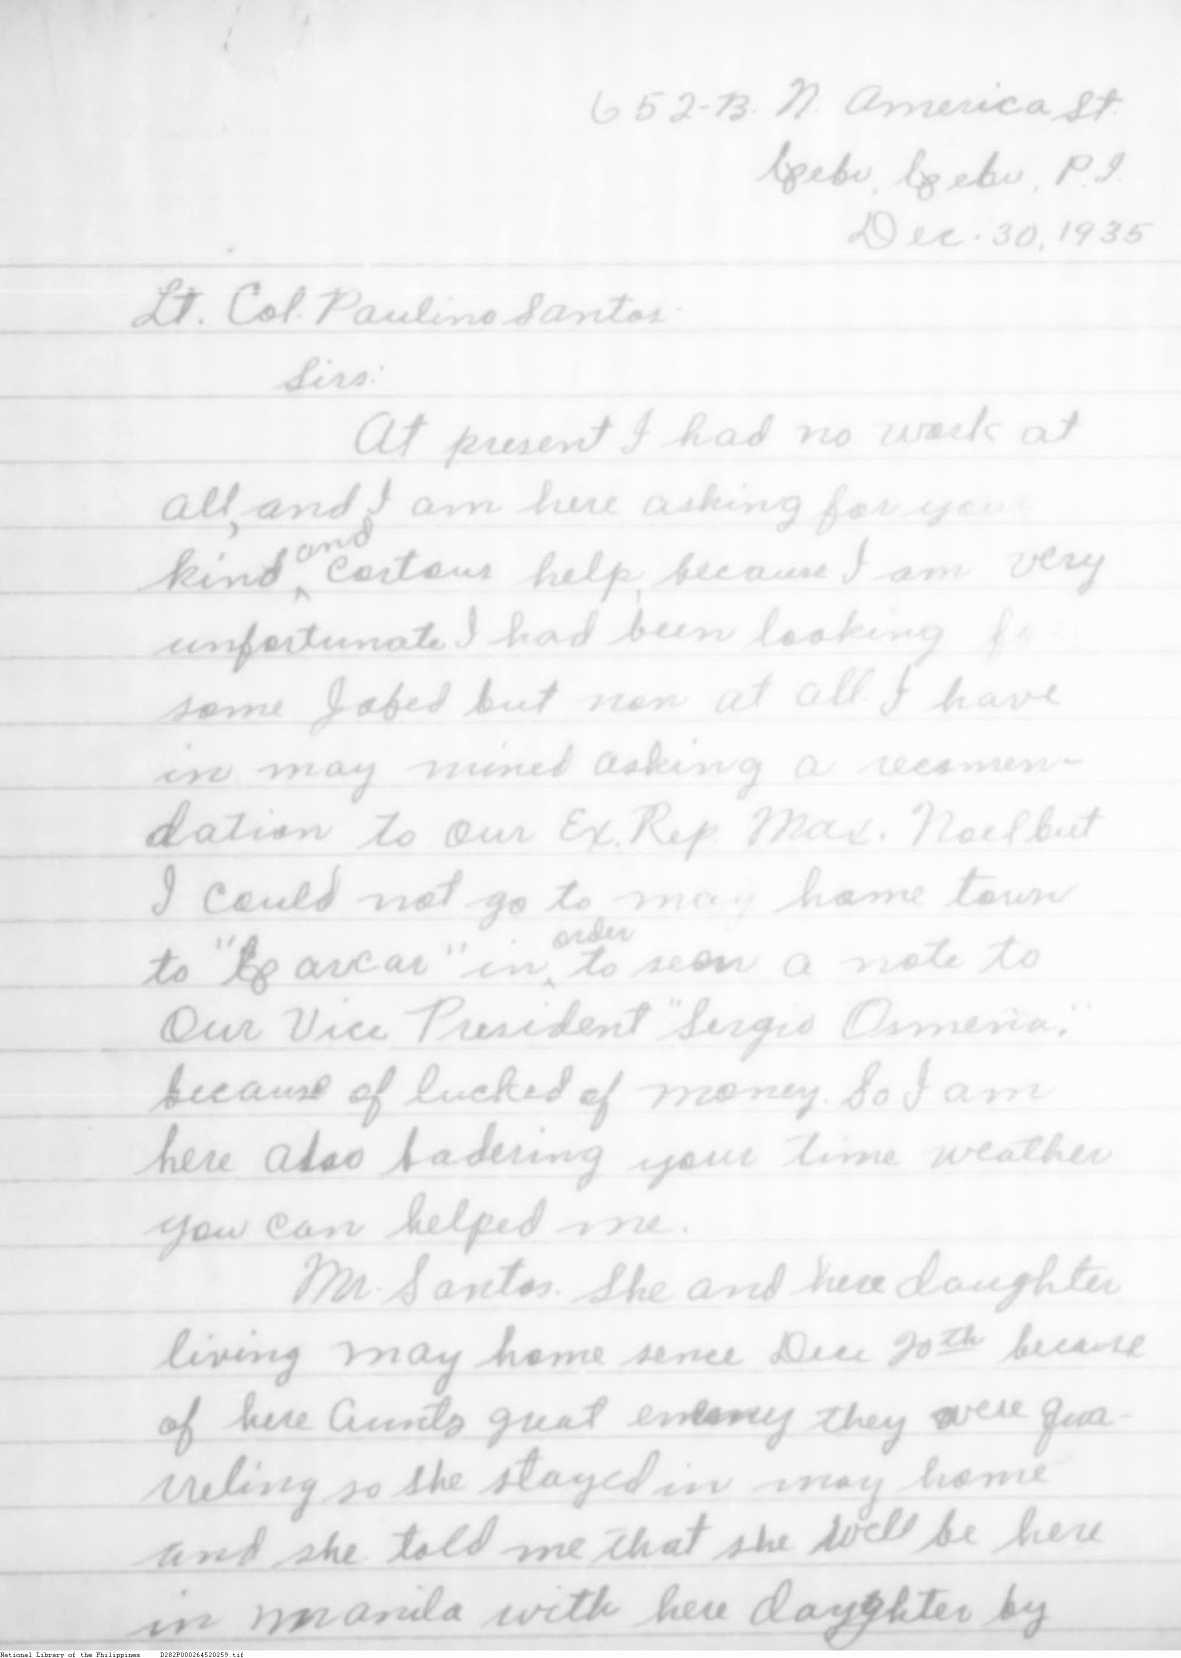 652-B. N. America St.
Cebu, Cebu, P.I.
Dec. 30, 1935
Lt. Col. Paulino Santos.
Sirs:
At present I had no work at
all, and I am here asking for your
kind and cortous help, because I am very
unfortunate I had been looking
some Jobed but non at all. I have
in may mined asking a recomen-
dation to our Ex. Rep. Max. Noel but
I could not go to may home town
to "Carcar" in order to seen a note to
Our Vice President "Sergio Osmeña."
because of lucked of money. So I am
here also badering your time weather
you can helped me.
Mr. Santos. She and here daughter
living may home sence Dec 20th because
of here Aunts great enemy they were qua-
rreling so she stayed in may home
and she told me that she will be here
in manila with here daughter by
National Library of the Philippines D282P000264520259.tif